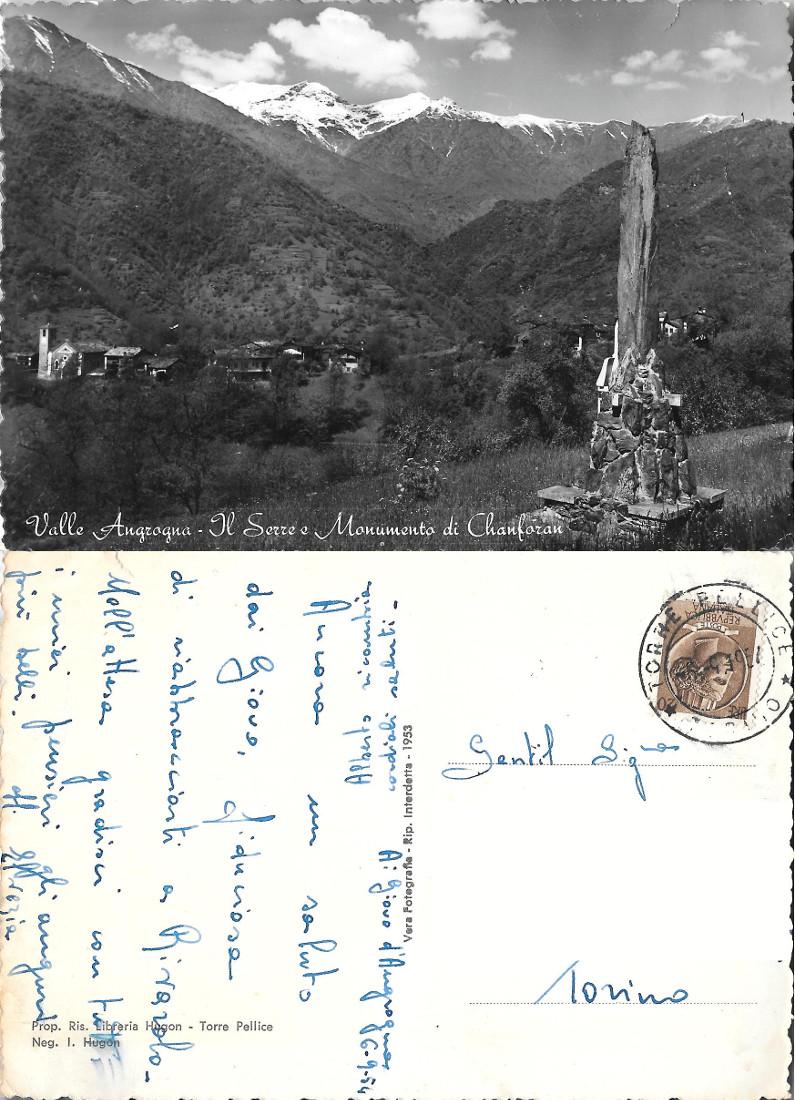 Valle Angrogna - Il Serre e Monumento di Chanforan
Ai Giovo d'Angrogna 6-9-54
Ancora un saluto
dai Giovo, fiduciosa
di riabbracciarti a Rivarolo -
Nell'attesa gradisci con tutti
i miei pensieri gli auguri
più belli. aff.
cordiali saluti -
Vera Fotografia - Rip. Interdetta - 1953
Prop. Ris. Libreria Hugon - Torre Pellice
Neg. I. Hugon
TORRE PELLICE
REPVBBLICA
ITALIANA
POSTE
LIRE 20
Gentil Sig.ra
Torino